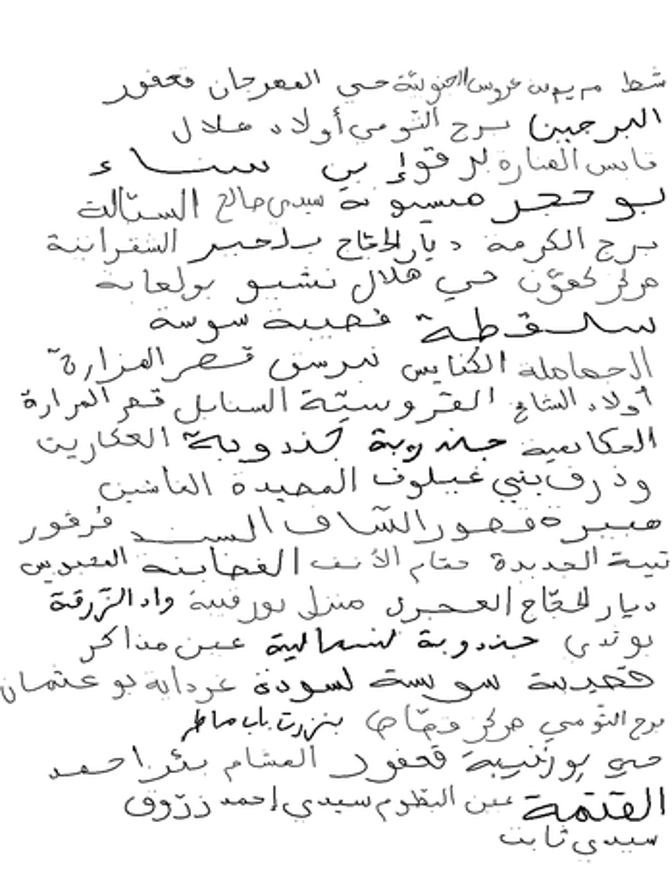 شط مريم عروس الجنوبية حي المهرجان قعفور
البرجين برج التومي أولاد هلال
قابس المنارة لرقو إبن سيناء
بو حجر ميسونة سيدي صالح الستالت
برج الكرمة ديار الحجاج بلخير الشقراننة
مركز كعون حي هلال نشيو بولعابة
سلقطة قصيبة سوسة
الحماملة الكنايس نبرسق قصر المزارة
أولاد الشامخ القروسيّة السنابل قصر المرارة
الحكايمية جندوبة جندوبة العكاريت
وذرف بني غيلوف المصيدة الماشين
هبيرة قصور الساف السند قرقور
تيبة الجديدة حمام الأنف الغضابنة
ديار الحجاج العجرى منزل بورقيبة واد الزرقة
بوندي جندوبة الشمالية عين مذاكر
قصيبة سوسة لسودة غردابة بو عثمان
برج التومي مركز بنزرت باب ماطر
حي بورقيبة قعفور المشام بئر احمد
القتمة عين البطوم سيدي إحمد زروق
سيدي ثابت